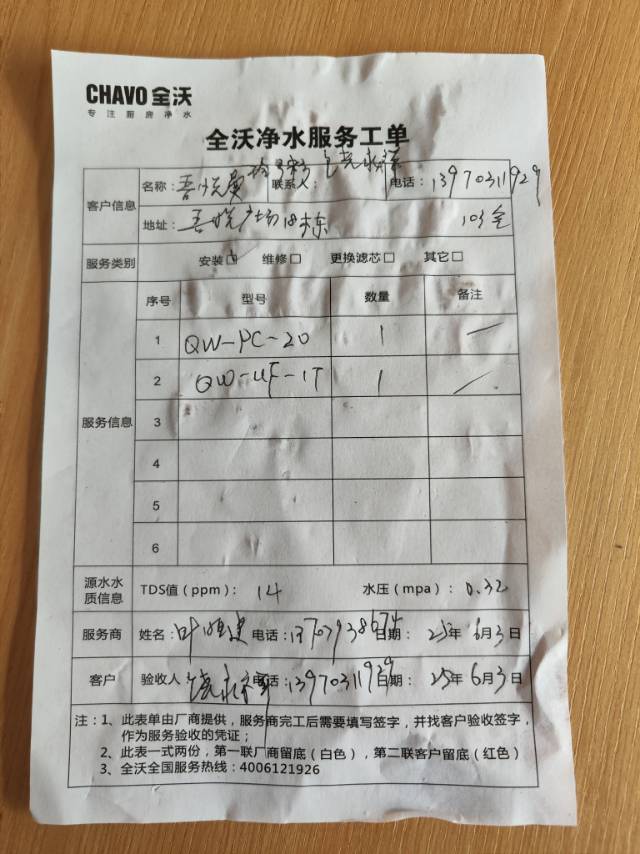 CHAVO 全沃
专注厨房净水
全沃净水服务工单
客户信息
名称： 联系人： 电话：13970311929
地址：吾悦广场18栋 103室
服务类别 安装☑ 维修□ 更换滤芯□ 其它□
服务信息
序号 型号 数量 备注
1 QW-PC-20 1 /
2 QW-UF-1T 1 /
3
4
5
6
源水水质信息 TDS值（ppm）： 14 水压（mpa）： 0.32
服务商 姓名：叶 电话：13707938674 日期： 25年6月3日
客户 验收人 电话：13970311929 日期： 25年6月3日
注：1、此表单由厂商提供，服务商完工后需要填写签字，并找客户验收签字，
作为服务验收的凭证；
2、此表一式两份，第一联厂商留底（白色），第二联客户留底（红色）
3、全沃全国服务热线：4006121926